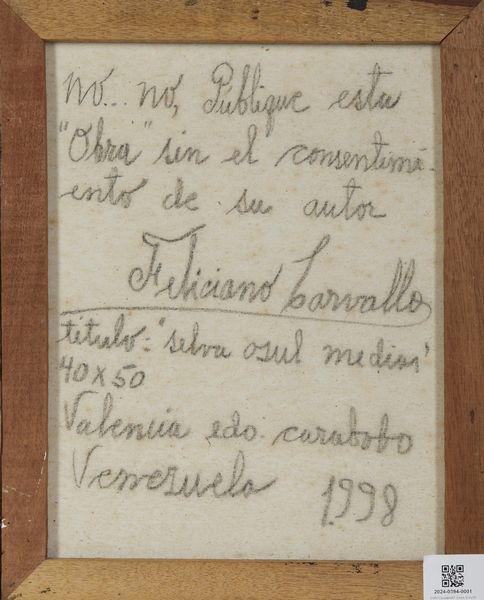 no.. no, Publique esta
"Obra" sin el consentimi-
ento de su autor
Feliciano Carvallo
titulo-"selva asul medias'
40 x 50
Valencia edo. carabobo
Venezuela 1998
2024-0394-0001